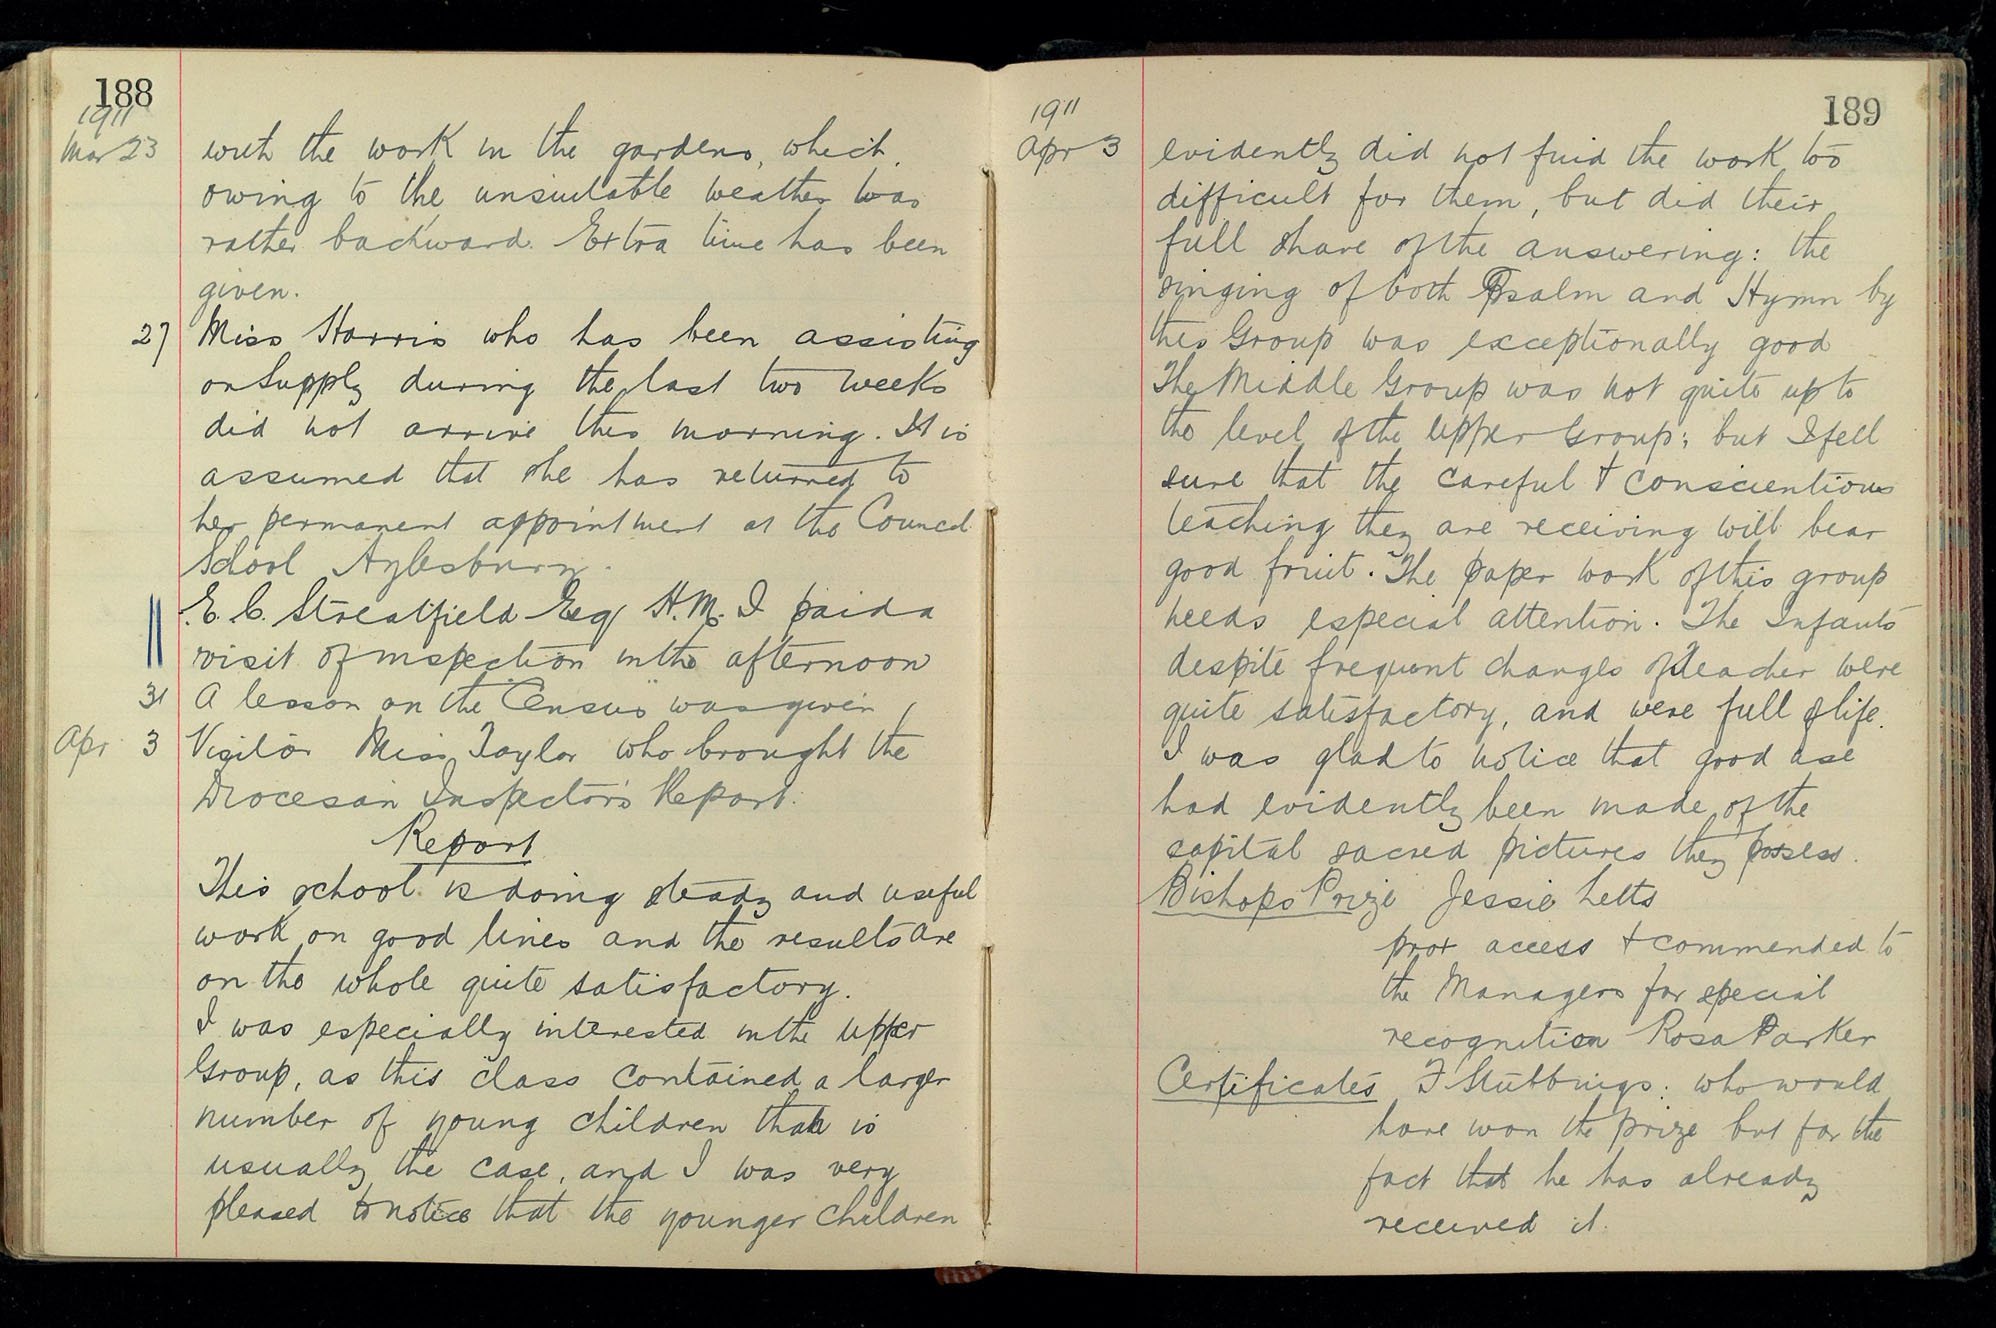 188
1911
Mar 23 with the work in the gardens, which,
owing to the unsuitable weather was
rather backward. Extra time has been
given.
27 Miss Harris who has been assisting
on Supply during the last two weeks
did not arrive this morning. It is
assumed that she has returned to
her permanent appointment at the Council
School Aylesbury.
E. C. Streatfield Esq H.M.I paid a
visit of inspection in the afternoon
31 A lesson on the "Census" was given
Apr 3 Visitor Miss Taylor who brought the
Diocesan Inspector's Report.
Report
This school is doing steady and useful
work on good lines and the results are
on the whole quite satisfactory.
I was especially interested in the upper
Group, as this class contained a larger
number of young children than is
usually the case, and I was very
pleased to notice that the younger children
189
1911
Apr 3 evidently did not find the work too
difficult for them, but did their
full share of the answering: the
singing of both Psalm and Hymn by
this Group was exceptionally good
The Middle Group was not quite up to
the level of the Upper Group; but I feel
sure that the careful & conscientious
teaching they are receiving will bear
good fruit. The paper work of this group
needs especial attention. The Infants
despite frequent changes of teacher were
quite satisfactory, and were full of life.
I was glad to notice that good use
had evidently been made of the
capital sacred pictures they possess.
Bishops Prize Jessie Letts
prox access & commended to
the Managers for special
recognition Rosa Parker
Certificates F Stubbings: who would
have won the prize but for the
fact that he has already
received it.